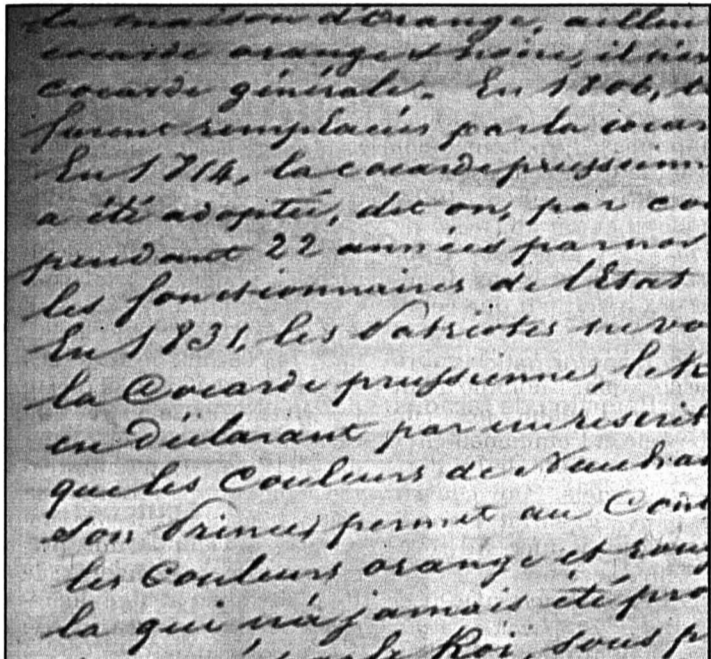 la maison d'Orange, ailleu
cocarde orange & noire, il n'en
cocarde générale. En 1806, 
furent remplacés par la cocar
En 1814, la cocarde prussienn
a été adoptée, dit on, par co
pendant 22 années par nos
les fonctionnaires de l'Etat
En 1831, les Patriotes
la Cocarde prussienne, le
en déclarant par un rescrit
que les Couleurs de
son Prince, permet au Cons
les Couleurs orange et roug
la qui n'a jamais été pro
le Roi, sous p